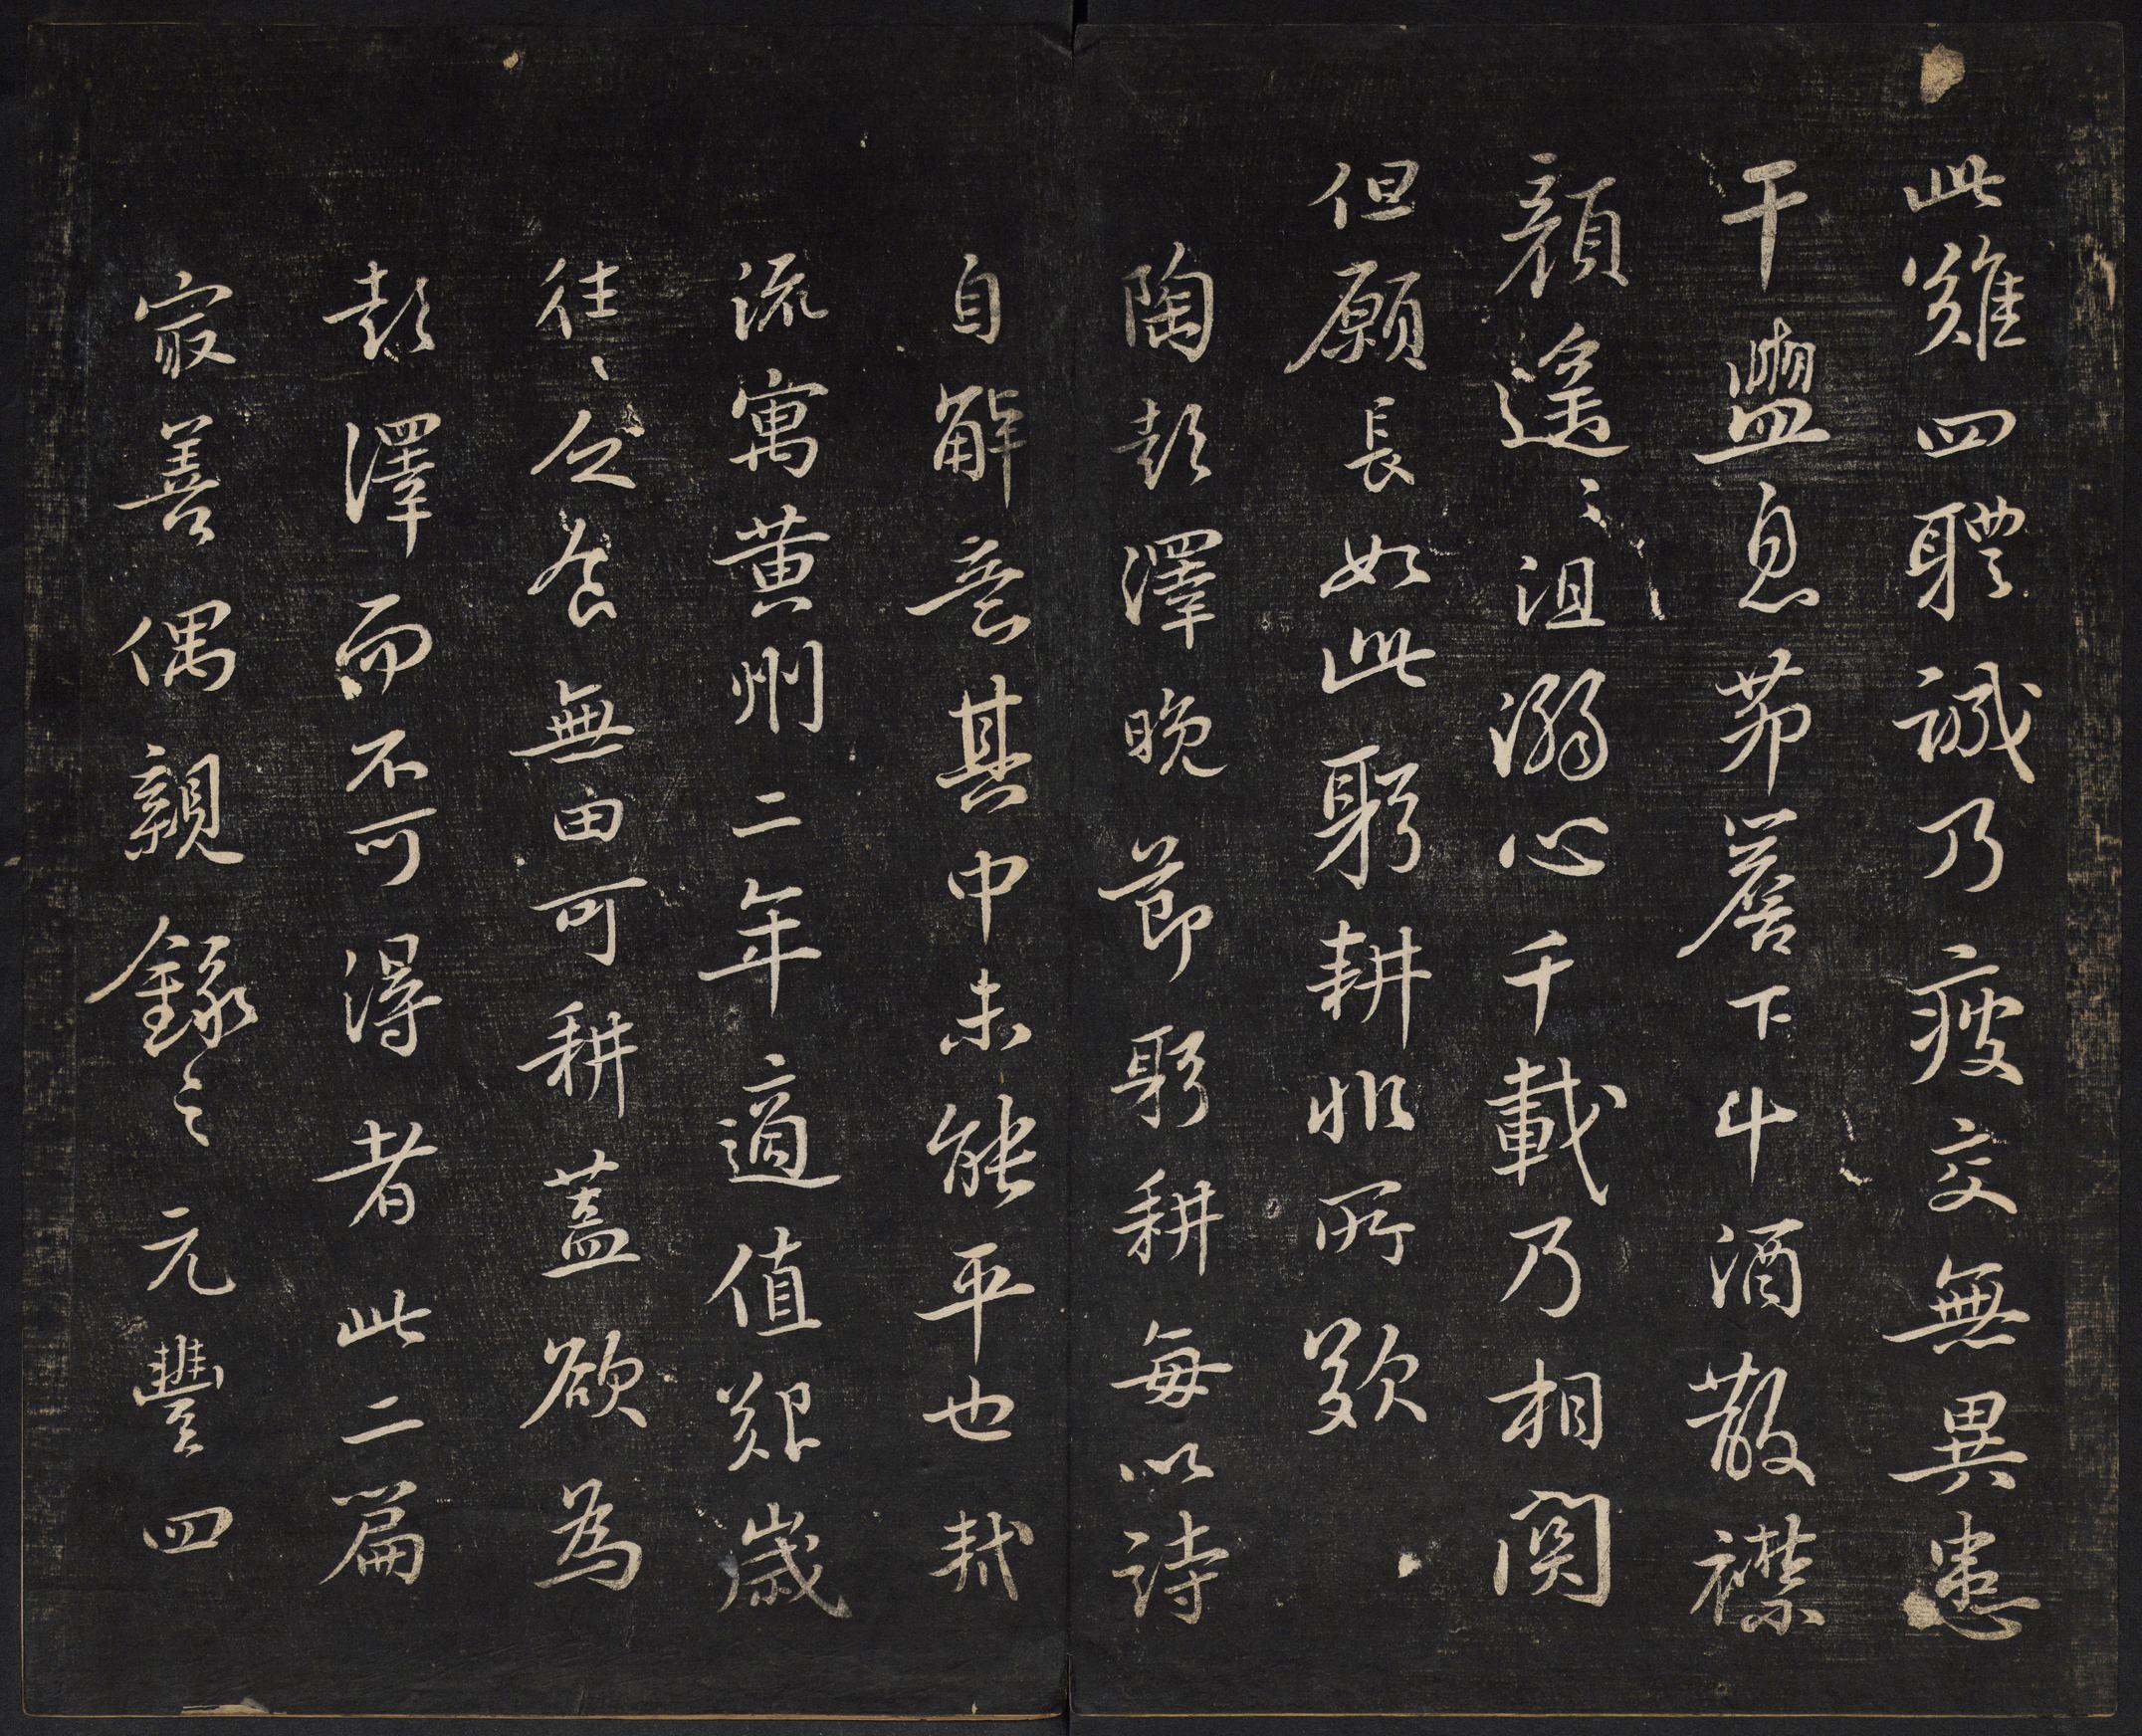 此難四體誠乃疲交無異患
干盥息茆簷下斗酒散襟
顏遙〻沮溺心千載乃相関
但願長如此躬耕非所歎
陶彭澤晚節躬耕每以詩
自解意其中未能平也軾
流寓黃州二年適值艱歲
往〻乏食無田可耕蓋欲為
彭澤而不可得者此二篇
最善偶親錄之元豐四